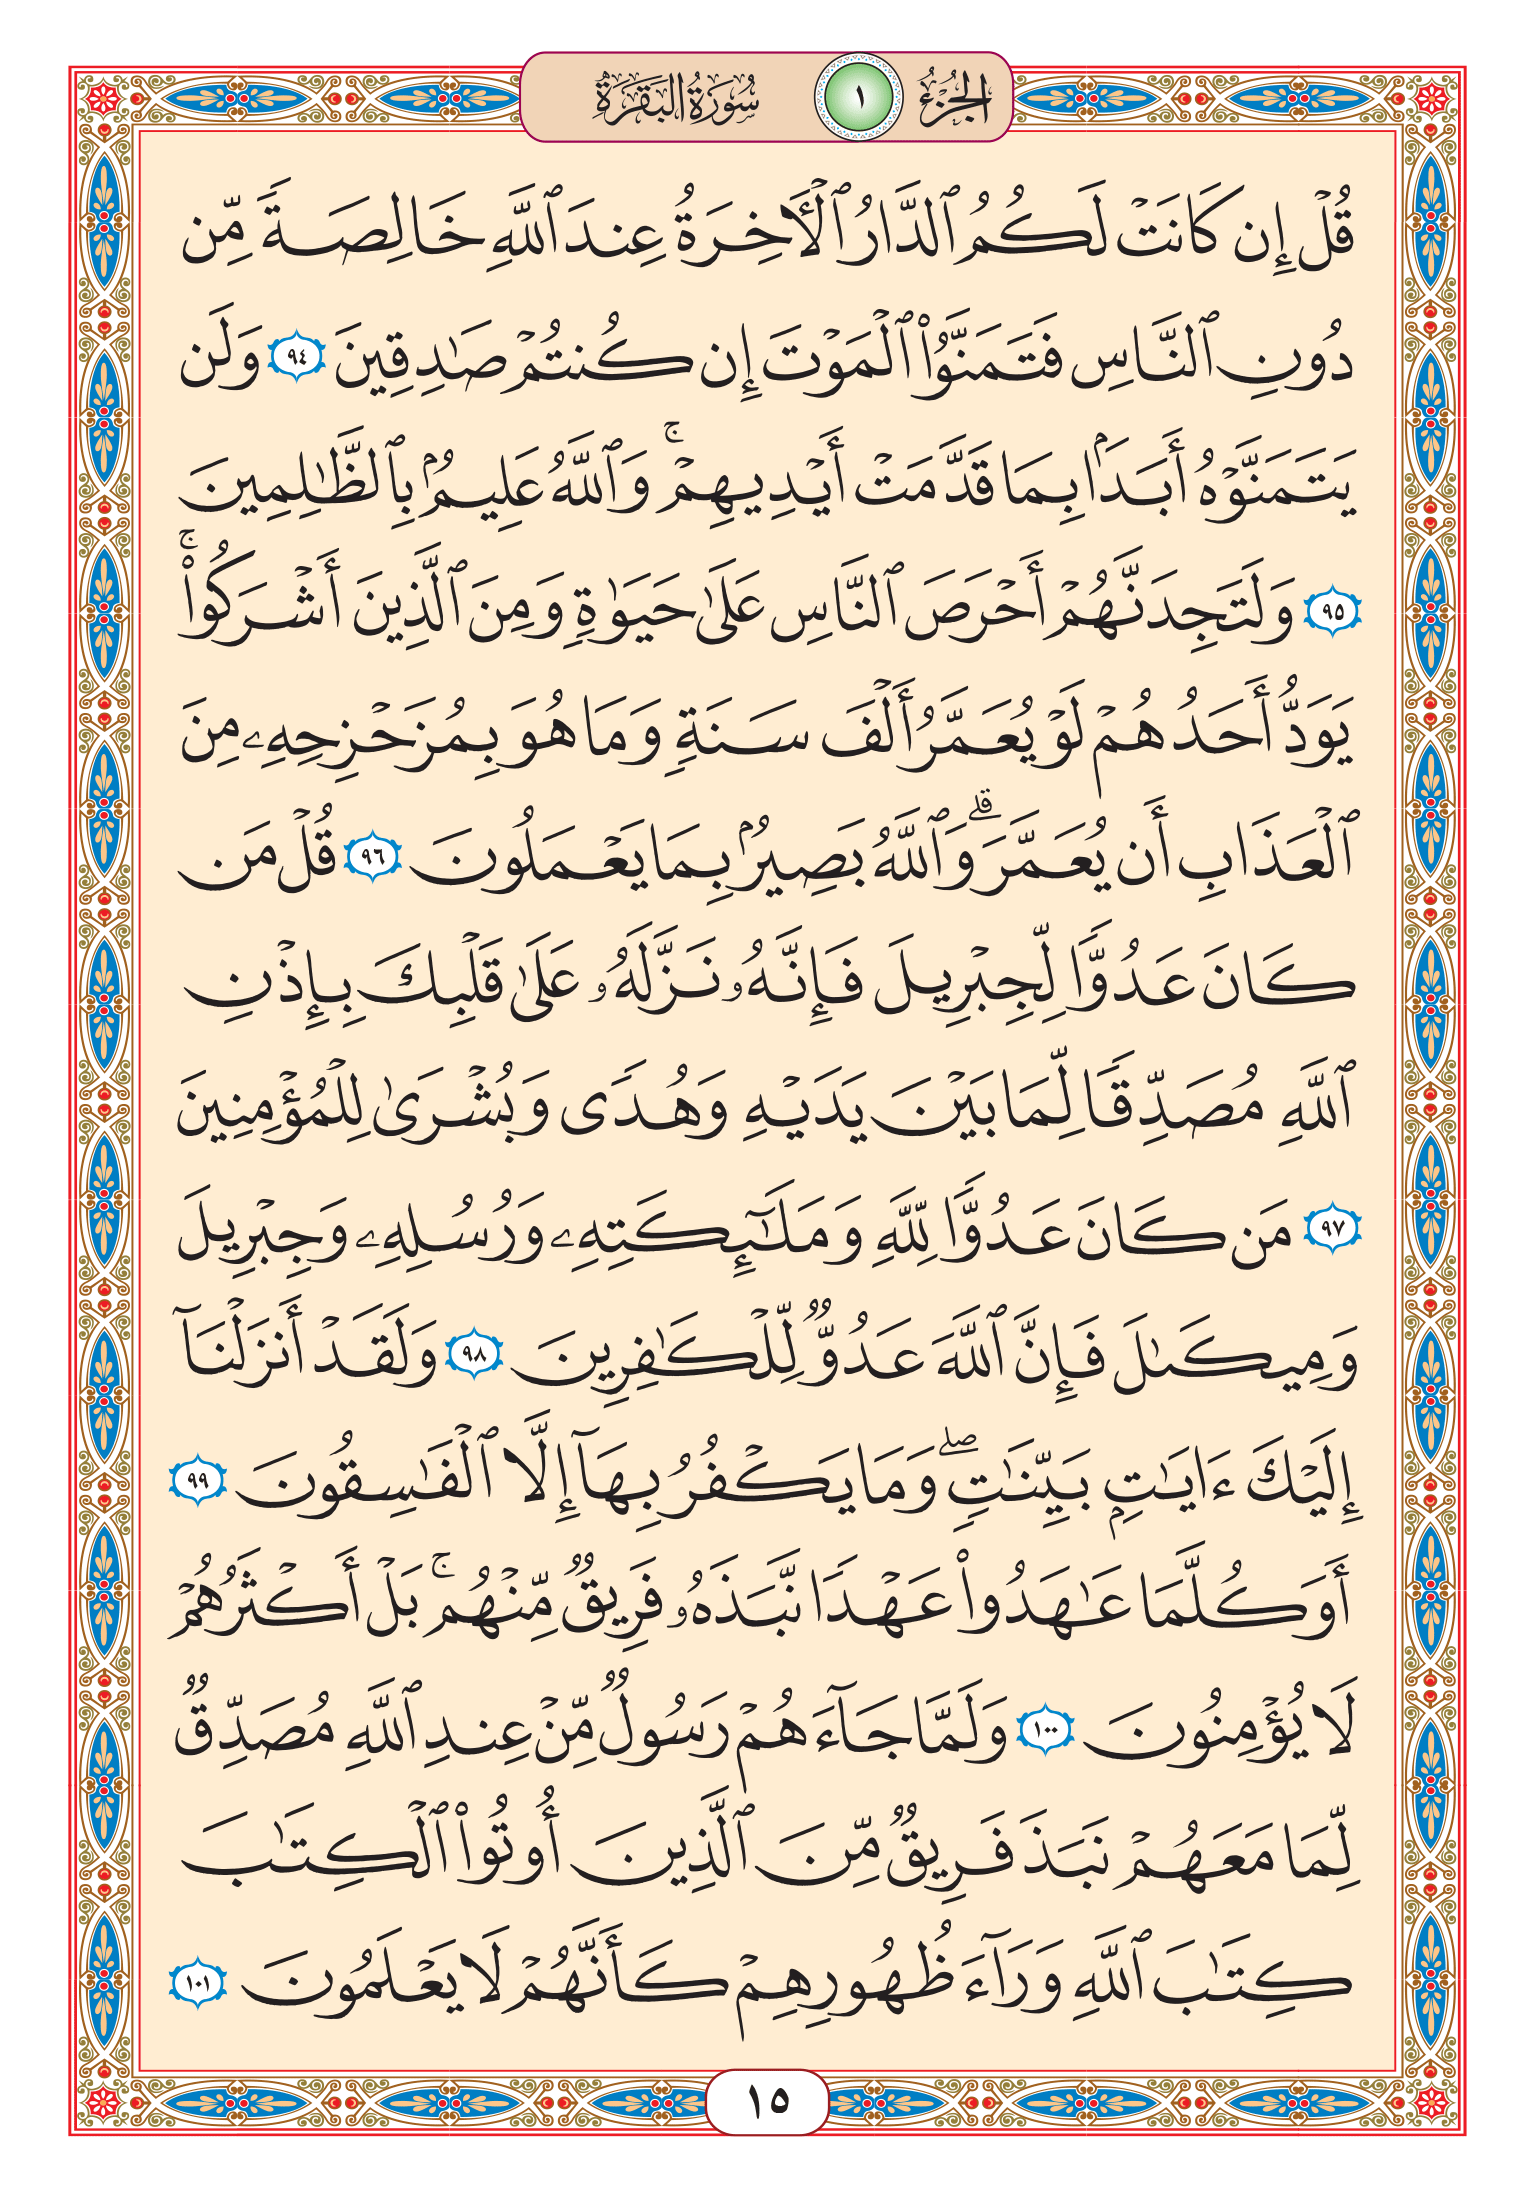 الجزء ١ سورة البقرة
قُلْ إِن كَانَتْ لَكُمُ ٱلدَّارُ ٱلْأَخِرَةُ عِندَ ٱللَّهِ خَالِصَةً مِّن
دُونِ ٱلنَّاسِ فَتَمَنَّوُا۟ ٱلْمَوْتَ إِن كُنتُمْ صَـٰدِقِينَ ٩٤ وَلَن
يَتَمَنَّوْهُ أَبَدًۢا بِمَا قَدَّمَتْ أَيْدِيهِمْ ۚ وَٱللَّهُ عَلِيمٌۢ بِٱلظَّـٰلِمِينَ
٩٥ وَلَتَجِدَنَّهُمْ أَحْرَصَ ٱلنَّاسِ عَلَىٰ حَيَوٰةٍ وَمِنَ ٱلَّذِينَ أَشْرَكُوا۟ ۚ
يَوَدُّ أَحَدُهُمْ لَوْ يُعَمَّرُ أَلْفَ سَنَةٍ وَمَا هُوَ بِمُزَحْزِحِهِۦ مِنَ
ٱلْعَذَابِ أَن يُعَمَّرَ ۗ وَٱللَّهُ بَصِيرٌۢ بِمَا يَعْمَلُونَ ٩٦ قُلْ مَن
كَانَ عَدُوًّا لِّجِبْرِيلَ فَإِنَّهُۥ نَزَّلَهُۥ عَلَىٰ قَلْبِكَ بِإِذْنِ
ٱللَّهِ مُصَدِّقًا لِّمَا بَيْنَ يَدَيْهِ وَهُدًى وَبُشْرَىٰ لِلْمُؤْمِنِينَ
٩٧ مَن كَانَ عَدُوًّا لِّلَّهِ وَمَلَـٰٓئِكَتِهِۦ وَرُسُلِهِۦ وَجِبْرِيلَ
وَمِيكَىٰلَ فَإِنَّ ٱللَّهَ عَدُوٌّ لِّلْكَـٰفِرِينَ ٩٨ وَلَقَدْ أَنزَلْنَآ
إِلَيْكَ ءَايَـٰتٍۭ بَيِّنَـٰتٍ ۖ وَمَا يَكْفُرُ بِهَآ إِلَّا ٱلْفَـٰسِقُونَ ٩٩
أَوَكُلَّمَا عَـٰهَدُوا۟ عَهْدًا نَّبَذَهُۥ فَرِيقٌ مِّنْهُم ۚ بَلْ أَكْثَرُهُمْ
لَا يُؤْمِنُونَ ١٠٠ وَلَمَّا جَآءَهُمْ رَسُولٌ مِّنْ عِندِ ٱللَّهِ مُصَدِّقٌ
لِّمَا مَعَهُمْ نَبَذَ فَرِيقٌ مِّنَ ٱلَّذِينَ أُوتُوا۟ ٱلْكِتَـٰبَ
كِتَـٰبَ ٱللَّهِ وَرَآءَ ظُهُورِهِمْ كَأَنَّهُمْ لَا يَعْلَمُونَ ١٠١
١٥